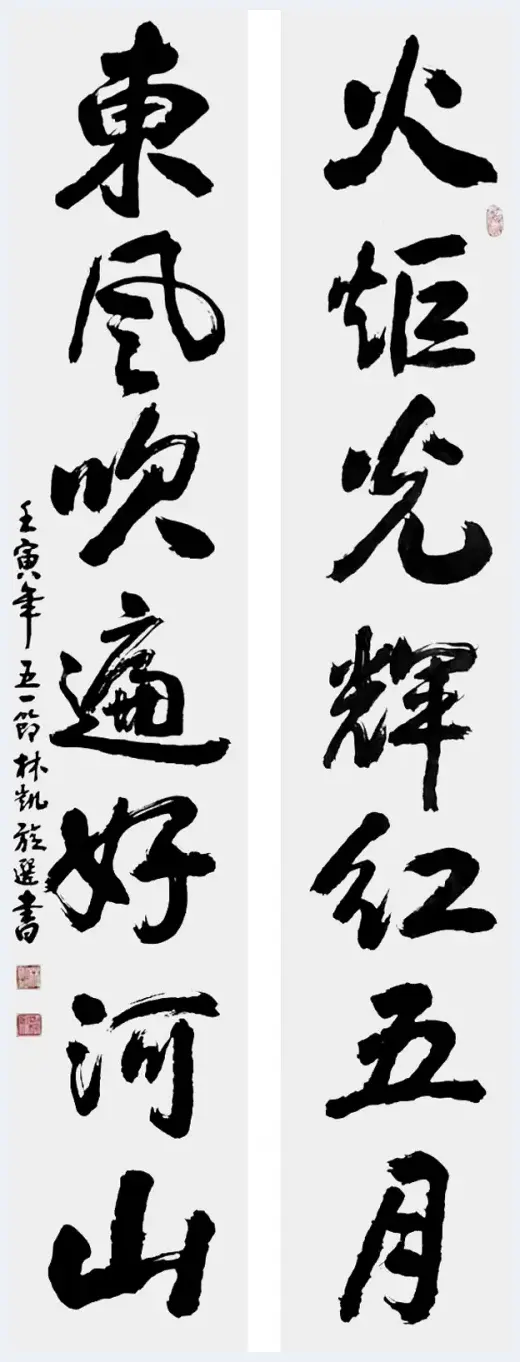 火炬光輝红五月
東風吹遍好河山
壬寅年五一節林凱旋選書